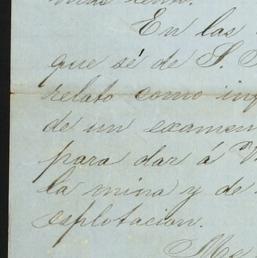 En las
que sé de S.
relato como in
de un examen
para dar á V
la mina y de
esplotacion.
Me